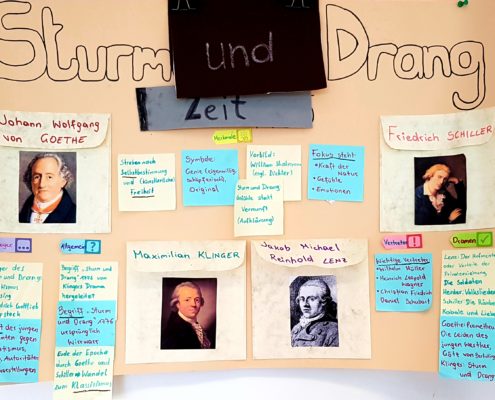 Sturm und Drang
Zeit
Johann Wolfgang
von GOETHE
Merkmale
Streben nach
Selbstbestimmung
und (künstlerische)
Freiheit
Symbole:
Genie (eigenwillig,
schöpferisch),
Original
Vorbild:
William
(engl. Dichter)
Sturm und Drang
Gefühle statt
Vernunft
(Aufklärung)
Fokus steht
• Kraft der
Natur
• Gefühle
• Emotionen
Friedrich SCHILLER
Maximilian KLINGER
Jakob Michael
Reinhold LENZ
Allgemein ?
Begriff "Sturm und
Drang" aus
Klingers Drama
hergeleitet
Begriff "Sturm
und Drang" 1776
ursprünglich
Wirrwarr
Ende der Epoche
durch Goethe und
Schiller → Wandel
zum Klassizismus
Vertreter !
Wichtige Vertreter
• Wilhelm Müller
• Heinrich Leopold
Wagner
• Christian Friedrich
Daniel Schubart
Dramen
Lenz: Der Hofmeister
oder Vorteile der
Privaterziehung
Die Soldaten
Herder: Volkslieder
Schiller: Die Räuber
Kabale und Liebe
Goethe: Prometheus
Die Leiden des
jungen Werther,
Götz von
Klinger: Sturm
und Drang